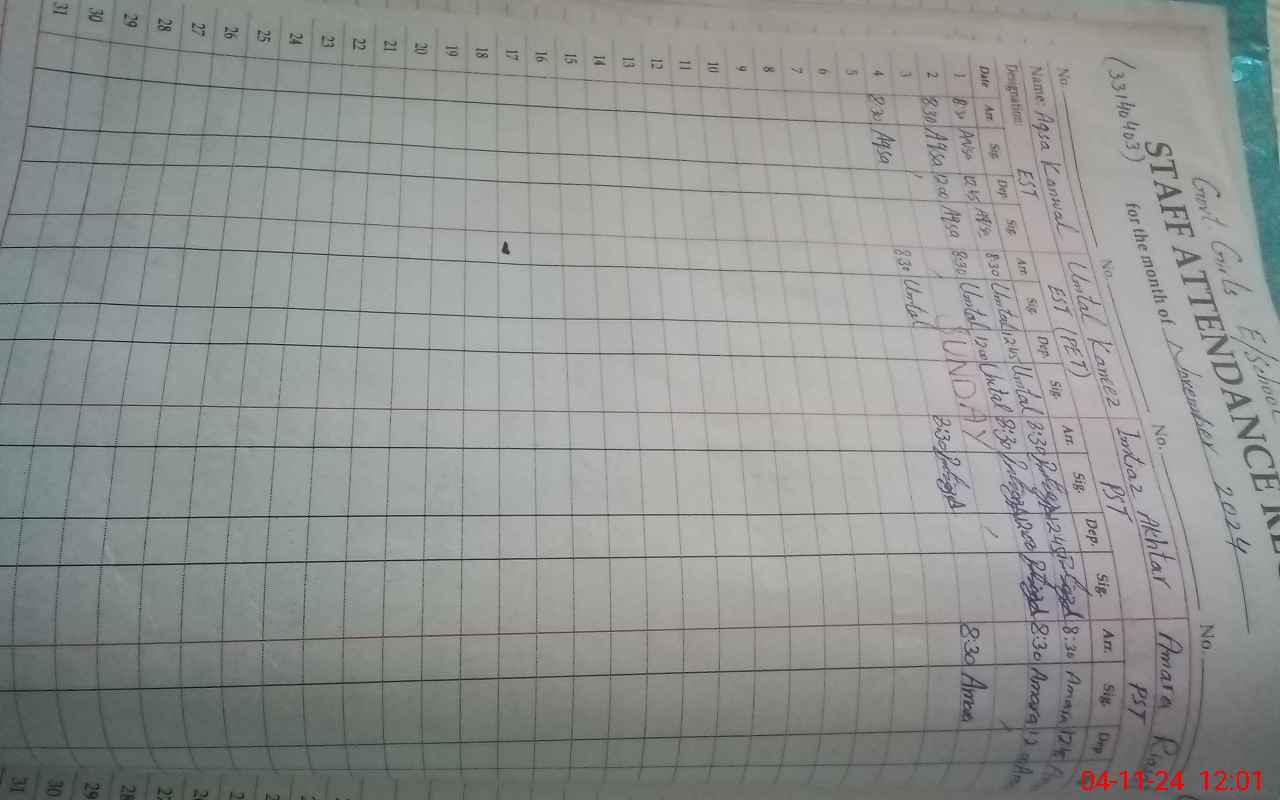 Govt. Girls E/School
STAFF ATTENDANCE
(33140403) for the month of November 2024
No. No. No. No.
Name: Aqsa Kanwal Umtal Kaneez Imtiaz Akhtar Amara
Designation: EST EST (PET) PST PST
Date Arr. Sig. Dep. Sig. Arr. Sig. Dep. Sig. Arr. Sig. Dep. Sig. Arr. Sig. Dep.
1 8:30 Aqsa 12:45 Aqsa 8:30 Umtal 12:45 Umtal 8:30 12:45 8:30 Amara 12:45
2 8:30 Aqsa 12:00 Aqsa 8:30 Umtal 12:00 Umtal 8:30 12:00 8:30 Amara 12
3 SUNDAY
4 8:30 Aqsa 8:30 Umtal 8:30 8:30 Amara
5
6
7
8
9
10
11
12
13
14
15
16
17
18
19
20
21
22
23
24
25
26
27
28
29
30
31
27
28
29
30
31
04-11-24 12:01